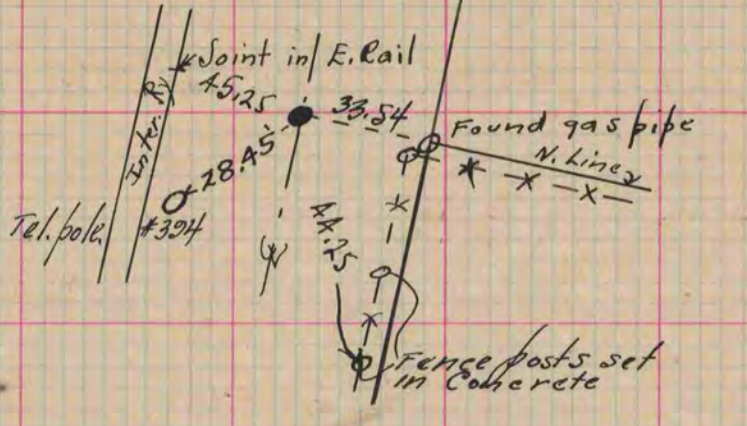 Joint in E. Rail
45.25
33.54
Found gas pipe
N. Line
Inter. Ry
28.45
Tel. pole
#394
44.25
Fence posts set
in Concrete